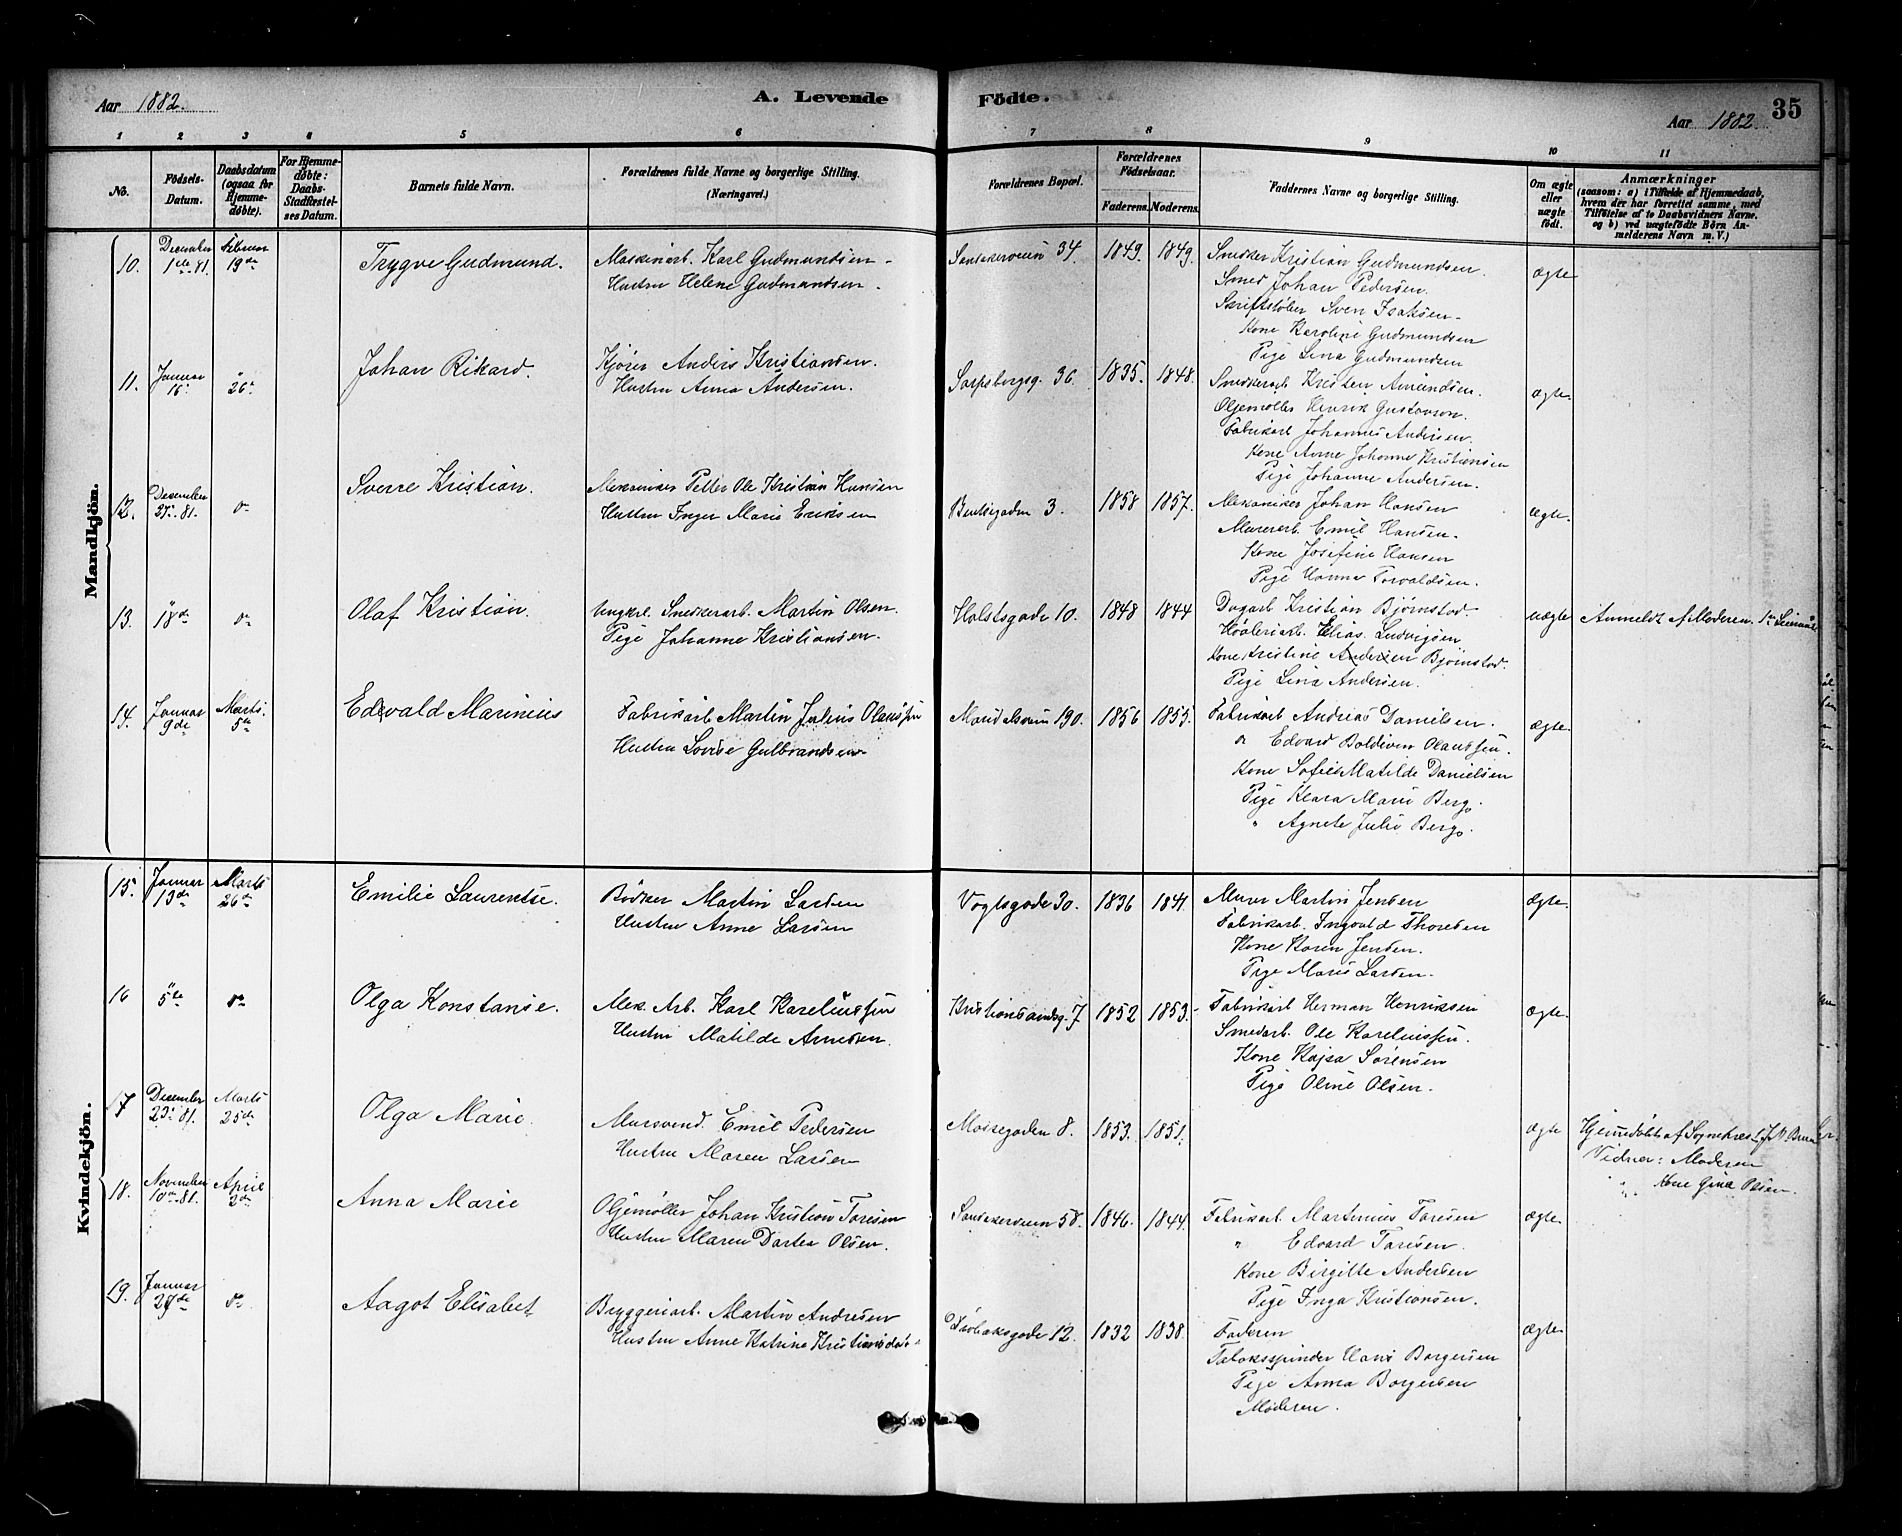 Aar 1882.
A. Levende
Födte.
Aar 1882.
35
1 2 3 4 5 6 7 8 9 10 11
No.
Födsels-
Datum.
Daabsdatum
(ogsaa for
Hjemme-
döbte).
For Hjemme-
döbte:
Daabs-
Stadfæstel-
ses Datum.
Barnets fulde Navn.
Forældrenes fulde Navne og borgerlige Stilling.
(Næringsvei.)
Forældrenes Bopæl.
Forældrenes
Födselsaar.
Faderens. Moderens.
Faddernes Navne og borgerlige Stilling.
Om ægte
eller
uægte
födt.
Anmærkninger
(saasom: a) i Tilfælde af Hjemmedaab,
hvem der har forrettet samme, med
Tilföielse af to Daabsvidners Navne.
og b) ved uægtefödte Börn An-
melderens Navn m. V.)
Mandkjön.
10.
December
1ste 81.
Februar
19de
Trygve Gudmund.
Maskinarb. Karl Gudmundsen -
Hustru Helene Gudmundsen.
34
1849. 1849.
Snedker Kristian Gudmundsen.
Smed Johan Pedersen.
Skriftstøber Sven Isaksen -
Kone Karoline Gudmundsen
Pige Lina Gudmundsen
ægte
11.
Januar
16.
" 26.
Johan Rikard.
Kjører Anders Kristiansen.
Hustru Anna Andersen.
Sarpsborgg. 36.
1835. 1848.
Snedkerarb. Kristen Amundsen.
Oljemøller Henrik Gustavson.
Fabrikarb Johannes Andersen.
Kone Anne Johanne Kristiansen
Pige Johanne Andersen.
ægte.
12.
December
27. 81.
do
Sverre Kristian.
Mekaniker Petter Ole Kristian Hansen
Hustru Inger Marie Eriksen
Bentsegaden 3.
1858 1857.
Mekaniker Johan Hansen
Murerarb. Emil Hansen.
Kone Josefine Hansen
Pige Hanna Torvaldsen.
ægte.
13.
" 18de
do
Olaf Kristian.
Ungkrl. Snedkerarb. Martin Olsen.
Pige Johanne Kristiansen.
Holstsgade 10.
1848 1844
Dagarb Kristian Bjørnstad.
Høvleriarb. Elias Ludvigsen
Kone Kristine Andersen Bjørnstad.
Pige Lina Andersen.
uægte
Anmeldt af Moderen.
14.
Januar
9de
Marts.
5te
Edvald Marinius
Fabrikarb Martin Julius Olaussen
Hustru Lovise Gulbrandsen
190.
1856 1855.
Fabrikarb Andreas Danielsen.
do Edvard Boldiven Olaussen.
Kone Sofie Matilde Danielsen
Pige Klara Marie Berg.
" Agnete Julie Berg.
ægte.
Kvindekjön.
15.
Januar
13de
Marts
26de
Emilie Laurentse.
Bødker Martin Larsen
Hustru Anne Larsen
Vogtsgade 30.
1836 1841.
Murer Martin Jensen
Fabrikarb. Ingvald Thoresen
Kone Karen Jensen.
Pige Marie Larsen.
ægte.
16
" 5te
do
Olga Konstanse.
Mek. Arb. Karl Kareliussen
Hustru Matilde Arnesen.
Kristiansandsg. 7
1852 1853.
Fabrikarb Herman Henriksen
Smedarb. Ole Kareliussen.
Kone Kajsa Sørensen
Pige Oline Olsen.
ægte.
17
December
23. 81.
Marts
25de
Olga Marie.
Mursvend. Emil Pedersen
Hustru Maren Larsen
8.
1853. 1851.
ægte
Hjemmedøbt af Sognepres
Vidner: Moderen
" Kone Gina Olsen.
18.
November
10de 81.
April
2de
Anna Marie
Oljemøller Johan Kristian Toresen
Hustru Maren Dortea Olsen.
58.
1846. 1844.
Fabrikarb. Martinius Toresen
" Edvard Toresen.
Kone Birgitte Andersen
Pige Inga Kristiansen.
ægte.
19.
Januar
27de
do
Aagot Elisabet
Bryggeriarb. Martin Andresen
Hustru Anne Katrine Kristiansdat.
12.
1832 1838.
Faderen
Tobaksspinder Hans Borgersen
Pige Anna Borgersen
Moderen.
ægte.